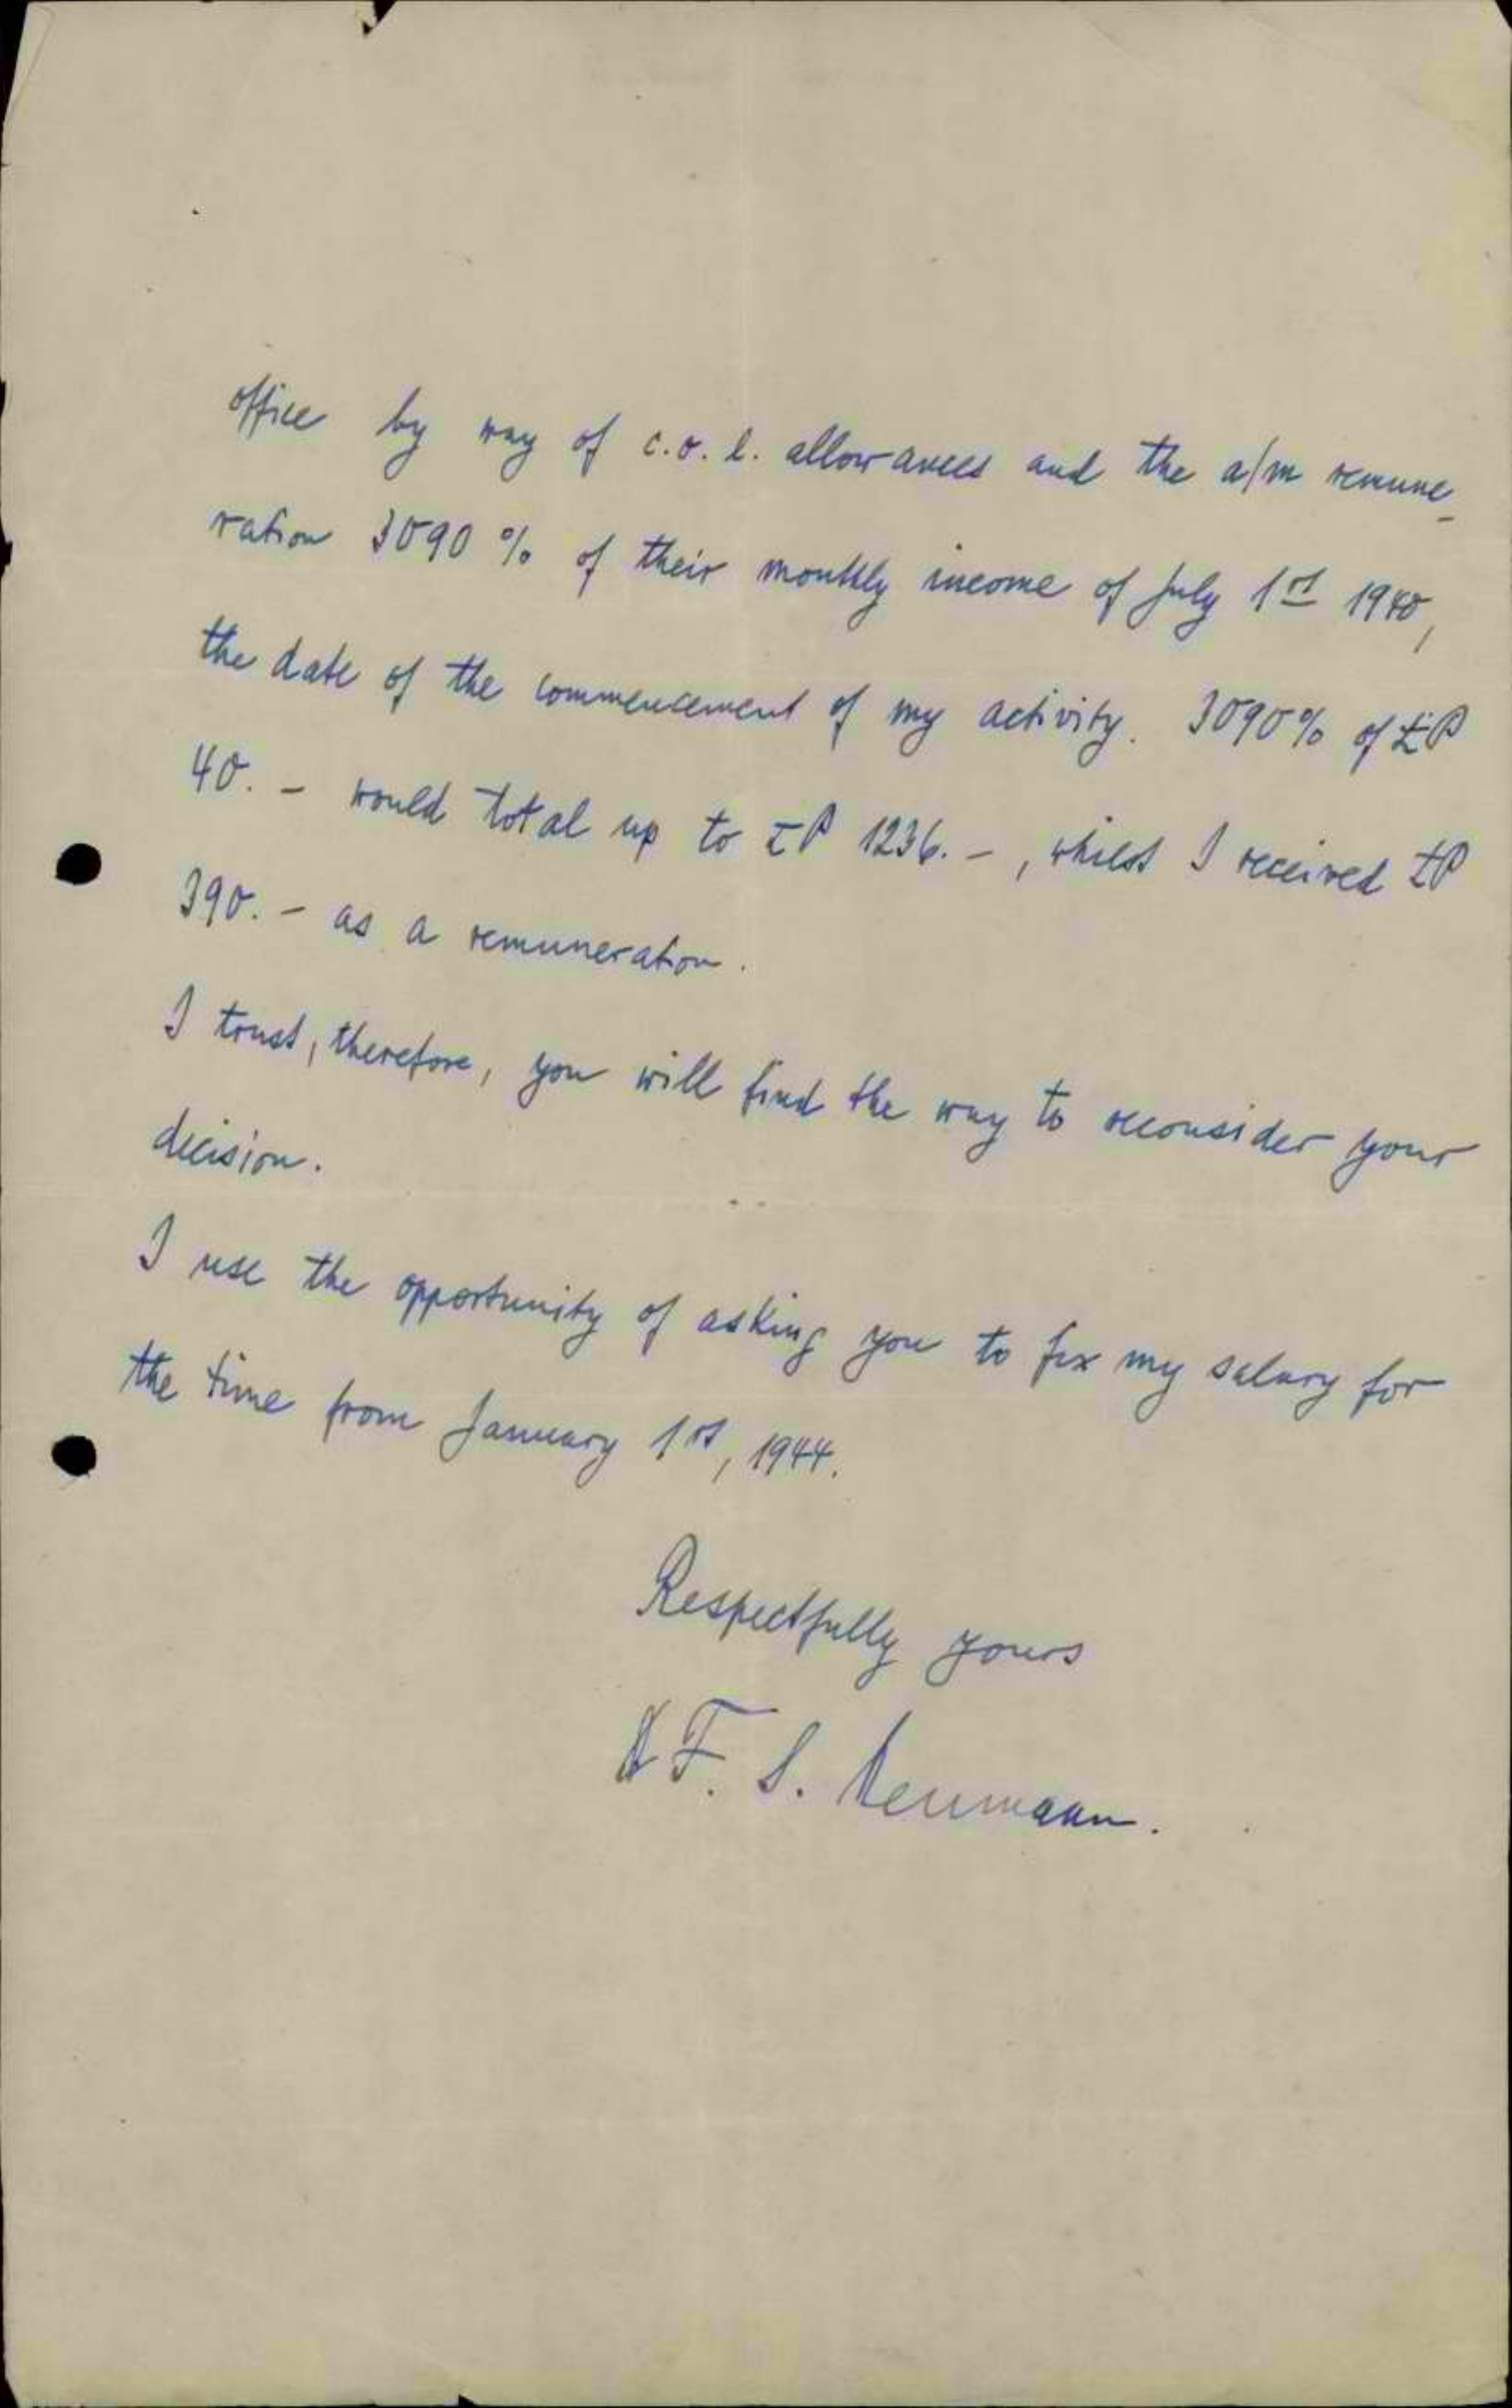 office by way of c.o.l. allowances and the a/m remune-
ration 3090 % of their monthly income of July 1st 1940,
the date of the commencement of my activity. 3090% of £P
40.- would total up to £P 1236.-, whilst I received £P
390.- as a remuneration.
I trust, therefore, you will find the way to reconsider your
decision.
I use the opportunity of asking you to fix my salary for
the time from January 1st, 1944.
Respectfully yours
F. S. Neumann.